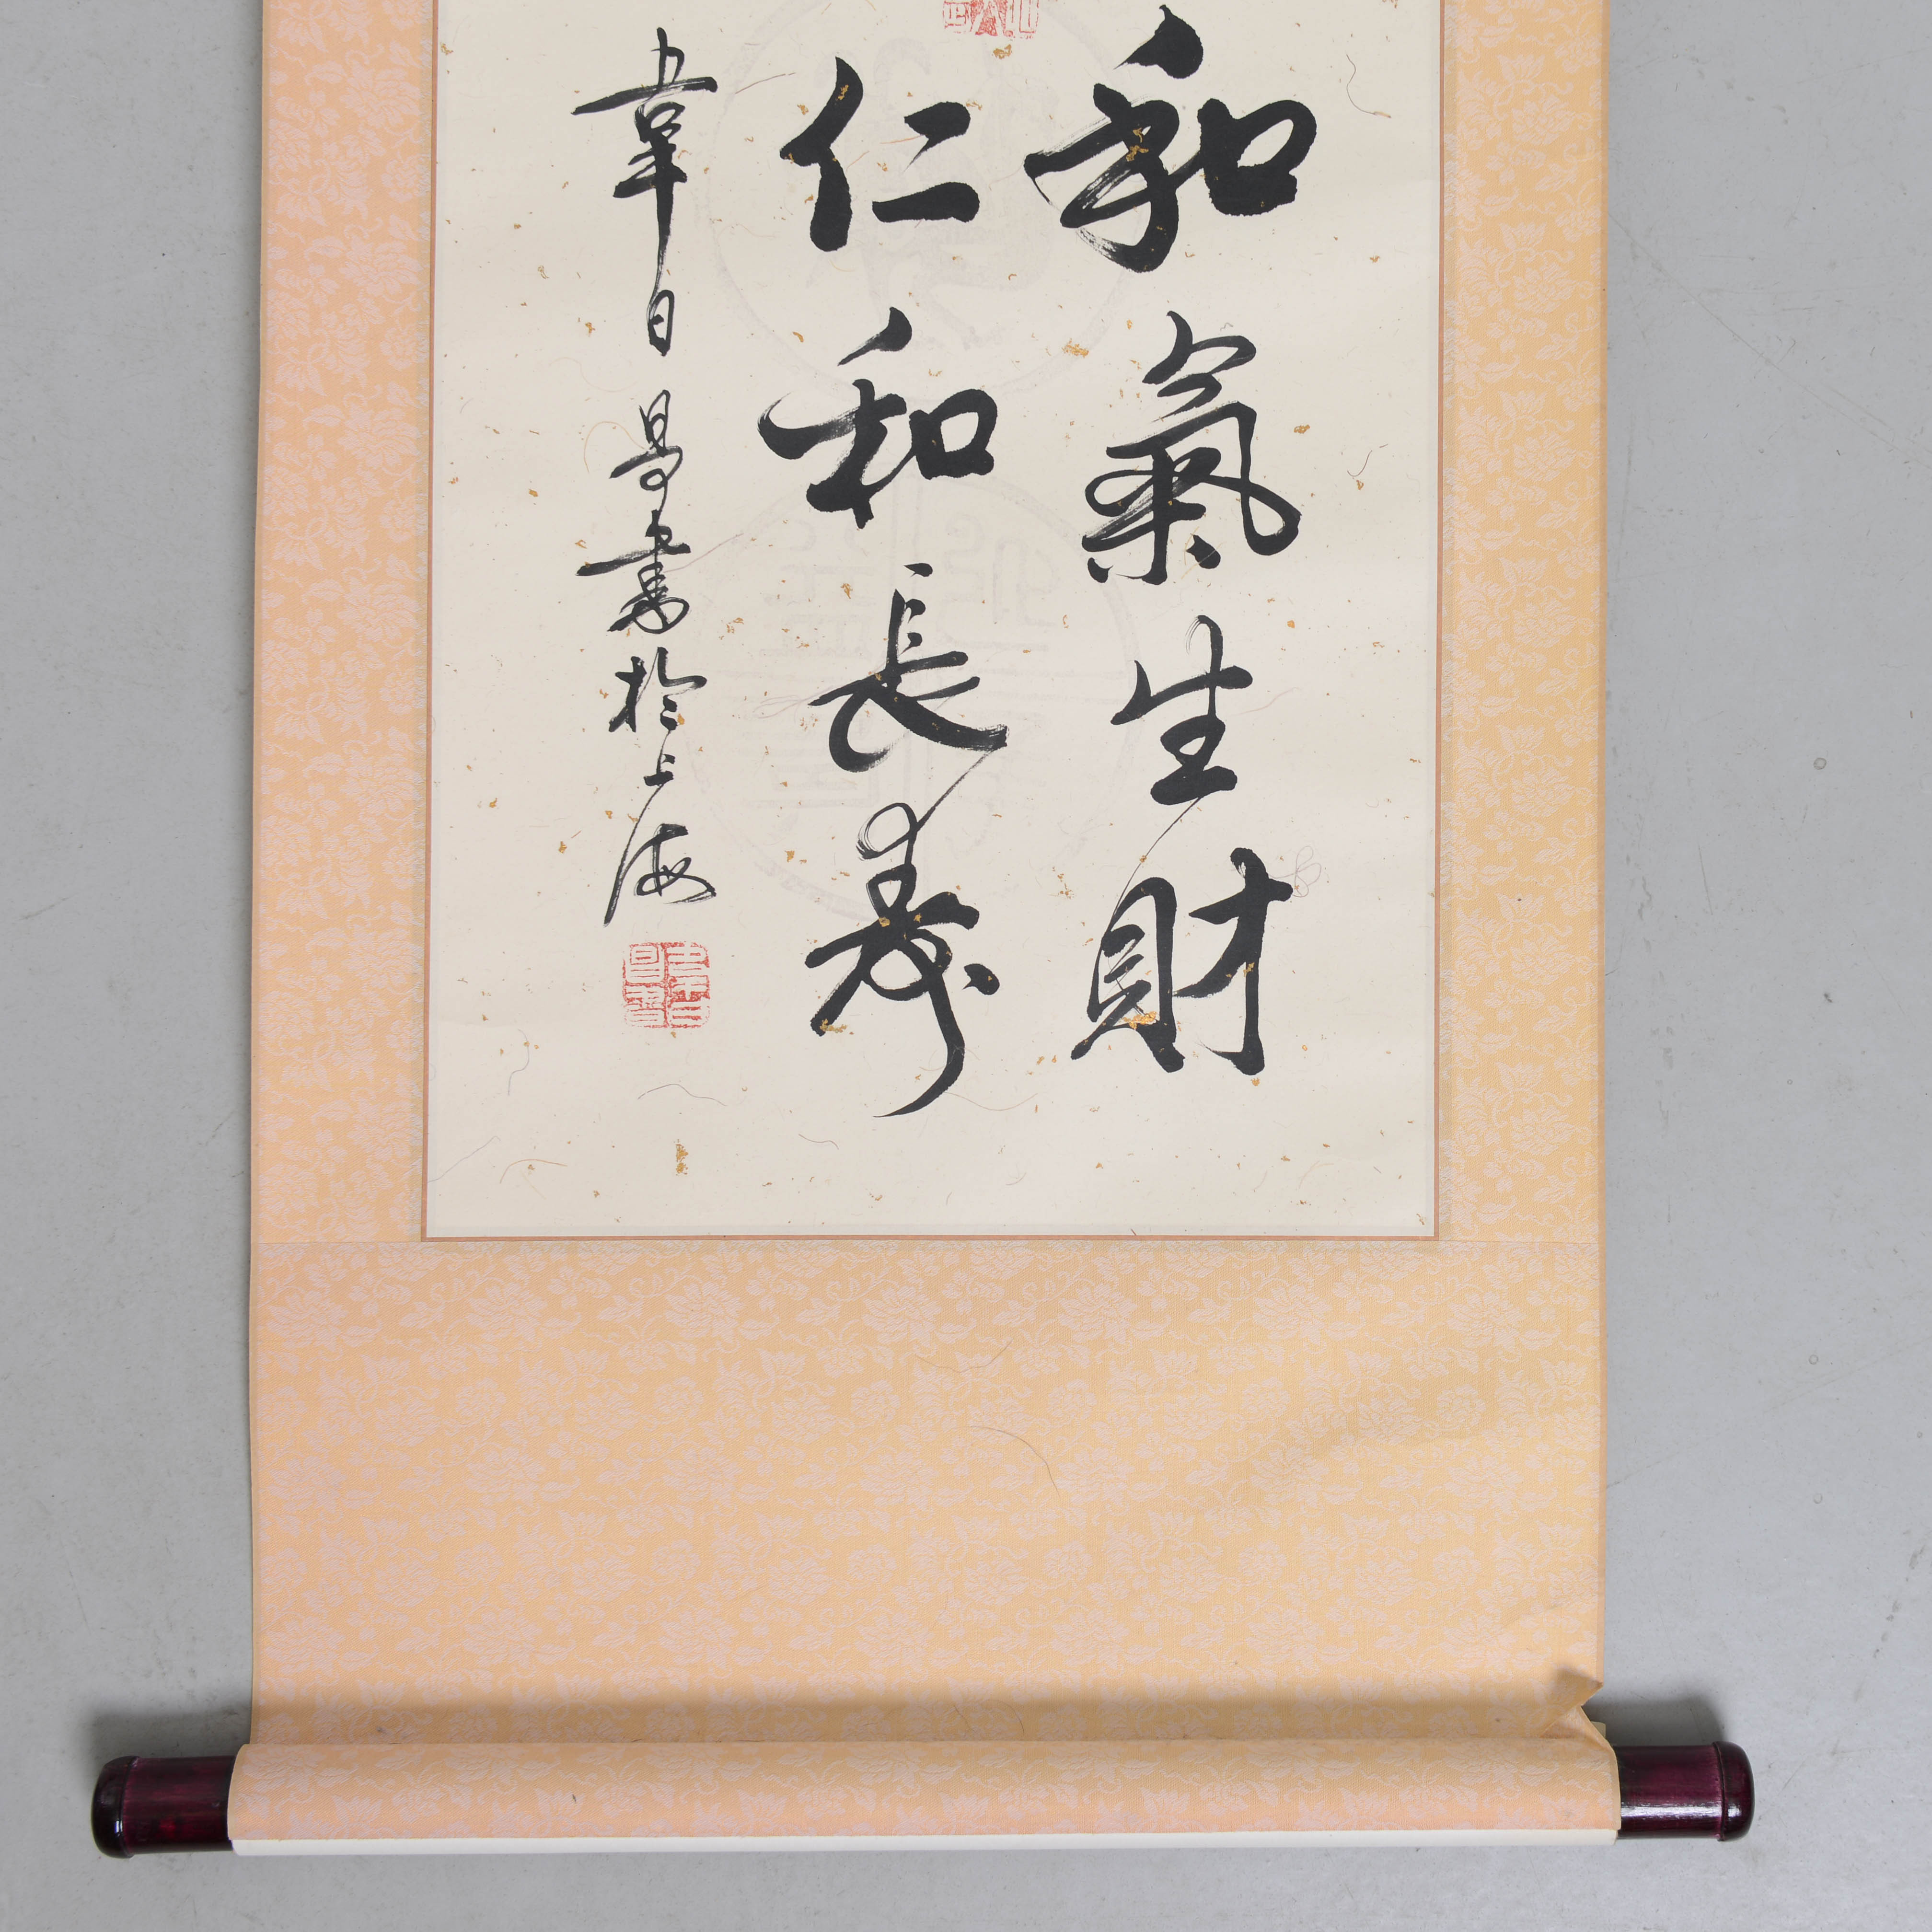 和氣生財
仁和長壽
韋日昜書於上海